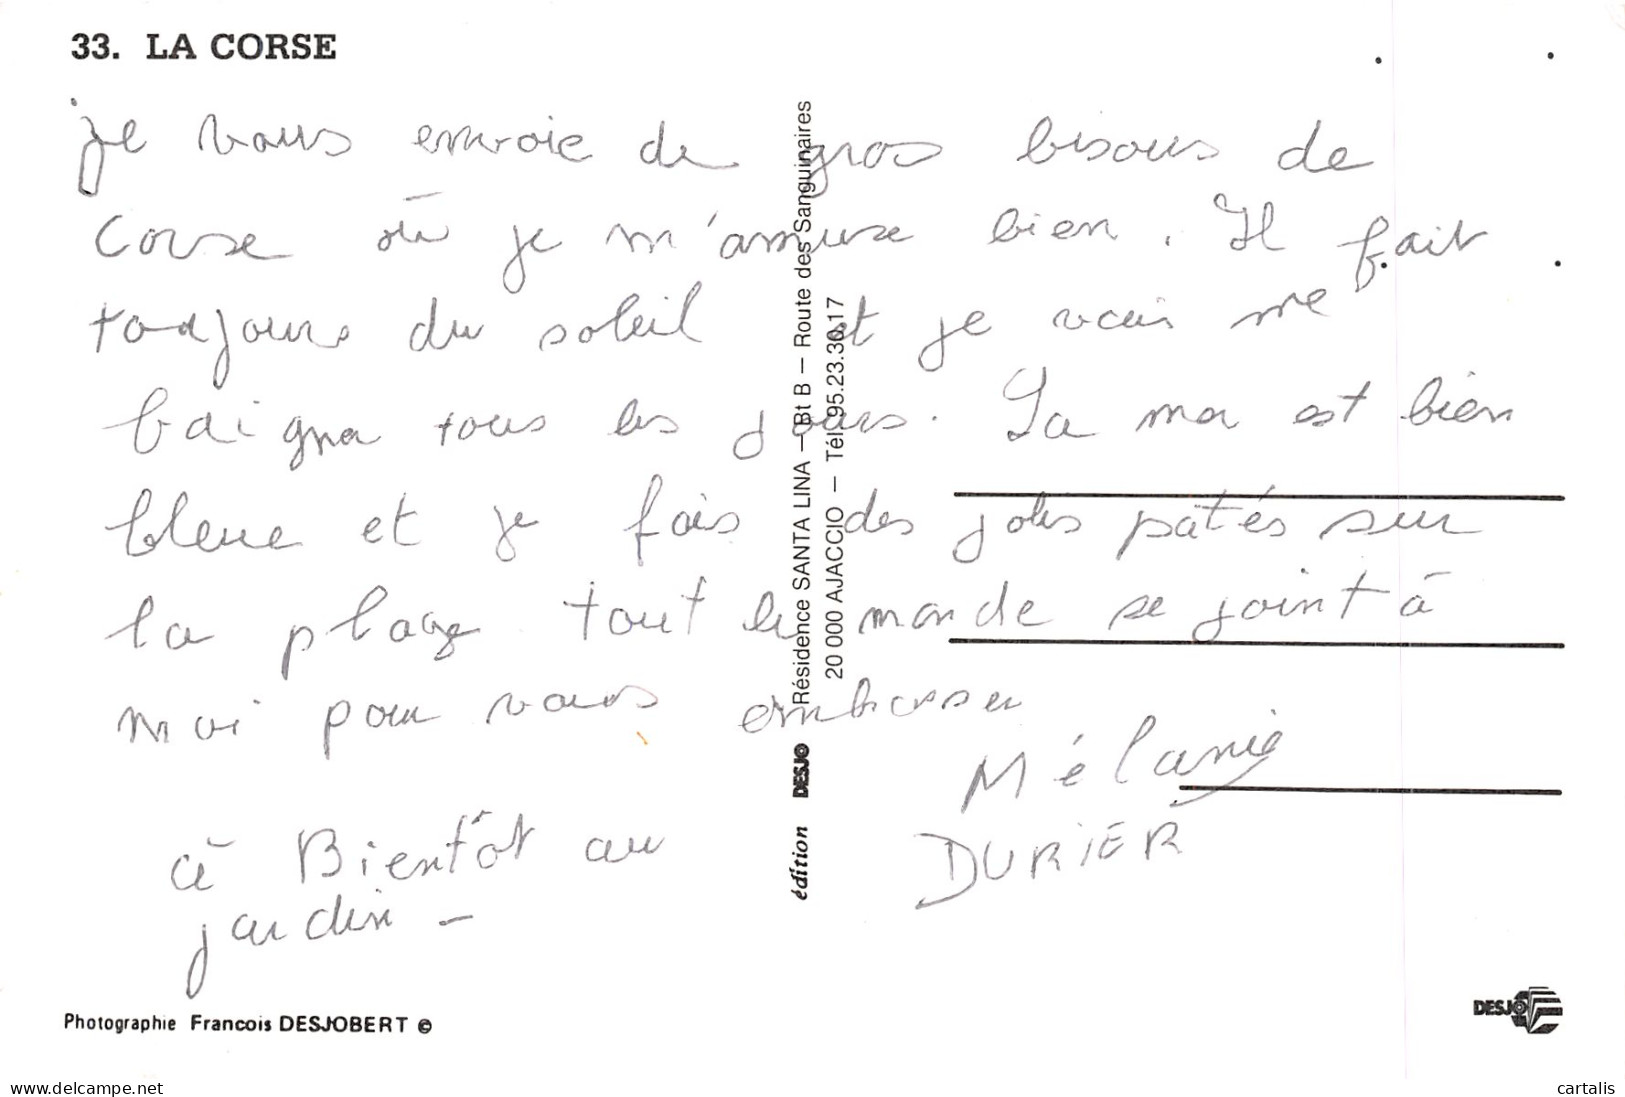 33. LA CORSE
je vous envoie de gros bisous de
Corse où je m'amuse bien. Il fait
toujours du soleil et je vais me
baigner tous les jours. La mer est bien
bleue et je fais des jolis patés sur
la plage tout le monde se joint à
moi pour vous embrasser
Mélanie
DURIER
à Bientôt au
jardin -
édition DESJO Résidence SANTA LINA — Bt B — Route des Sanguinaires
20 000 AJACCIO — Tél. 95.23.30.17
Photographie Francois DESJOBERT ©
DESJO
www.delcampe.net
cartalis